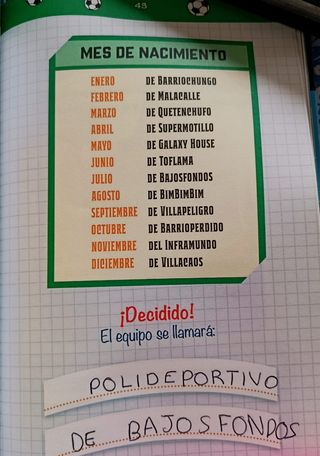 43
MES DE NACIMIENTO
ENERO DE BARRIOCHUNGO
FEBRERO DE MALACALLE
MARZO DE QUETENCHUFO
ABRIL DE SUPERMOTILLO
MAYO DE GALAXY HOUSE
JUNIO DE TOFLAMA
JULIO DE BAJOSFONDOS
AGOSTO DE BIMBIMBIM
SEPTIEMBRE DE VILLAPELIGRO
OCTUBRE DE BARRIOPERDIDO
NOVIEMBRE DEL INFRAMUNDO
DICIEMBRE DE VILLACAOS
¡Decidido!
El equipo se llamará:
POLIDEPORTIVO
DE BAJOSFONDOS